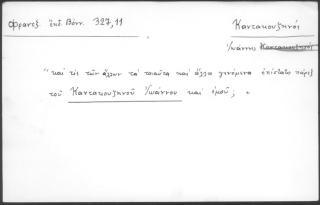 Φραντζ. ἔκδ. Βόνν. 327,11
Καντακουζηνοί
Ἰωάννης Καντακουζηνός
"καὶ τίς τῶν ἄλλων τὰ τοιαῦτα καὶ ἄλλα γενόμενα ἐπίστατο πάρεξ
τοῦ Καντακουζηνοῦ Ἰωάννου καὶ ἐμοῦ; .